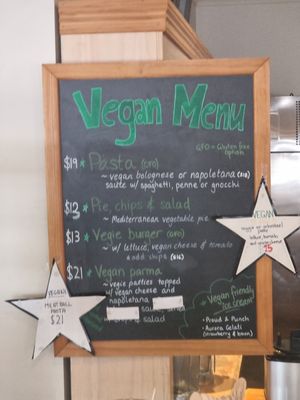 Vegan Menu
GFO = Gluten free
option
$19 * Pasta (GFO)
~ vegan bolognese or napoletana (GFO)
sauce w/ spaghetti, penne or gnocchi
$13 * Pie, chips & salad
~ Mediterranean vegetable pie
$13 * Vegie burger (GFO)
~ w/ lettuce, vegan cheese & tomato
add chips
$21 * Vegan parma
~ vegie parties topped
w/ vegan cheese and
napoletana
& salad
VEGAN
MEATBALL
PASTA
$21
VEGAN
Vegan friendly
ice cream
• Proud & Punch
• Aurora Gelati
(strawberry & lemon)